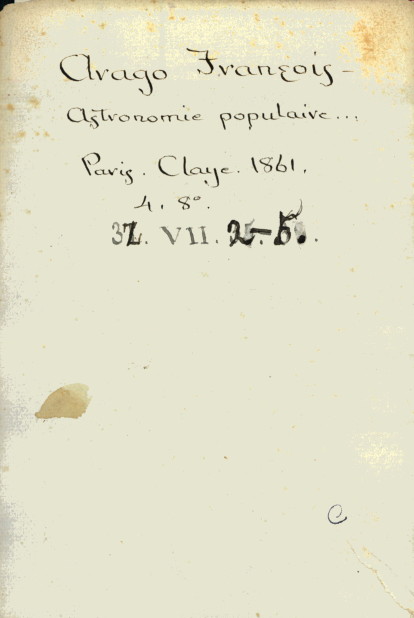 Arago François –
Astronomie populaire...
Paris. Claye. 1861.
4. 8º.
VII.
C